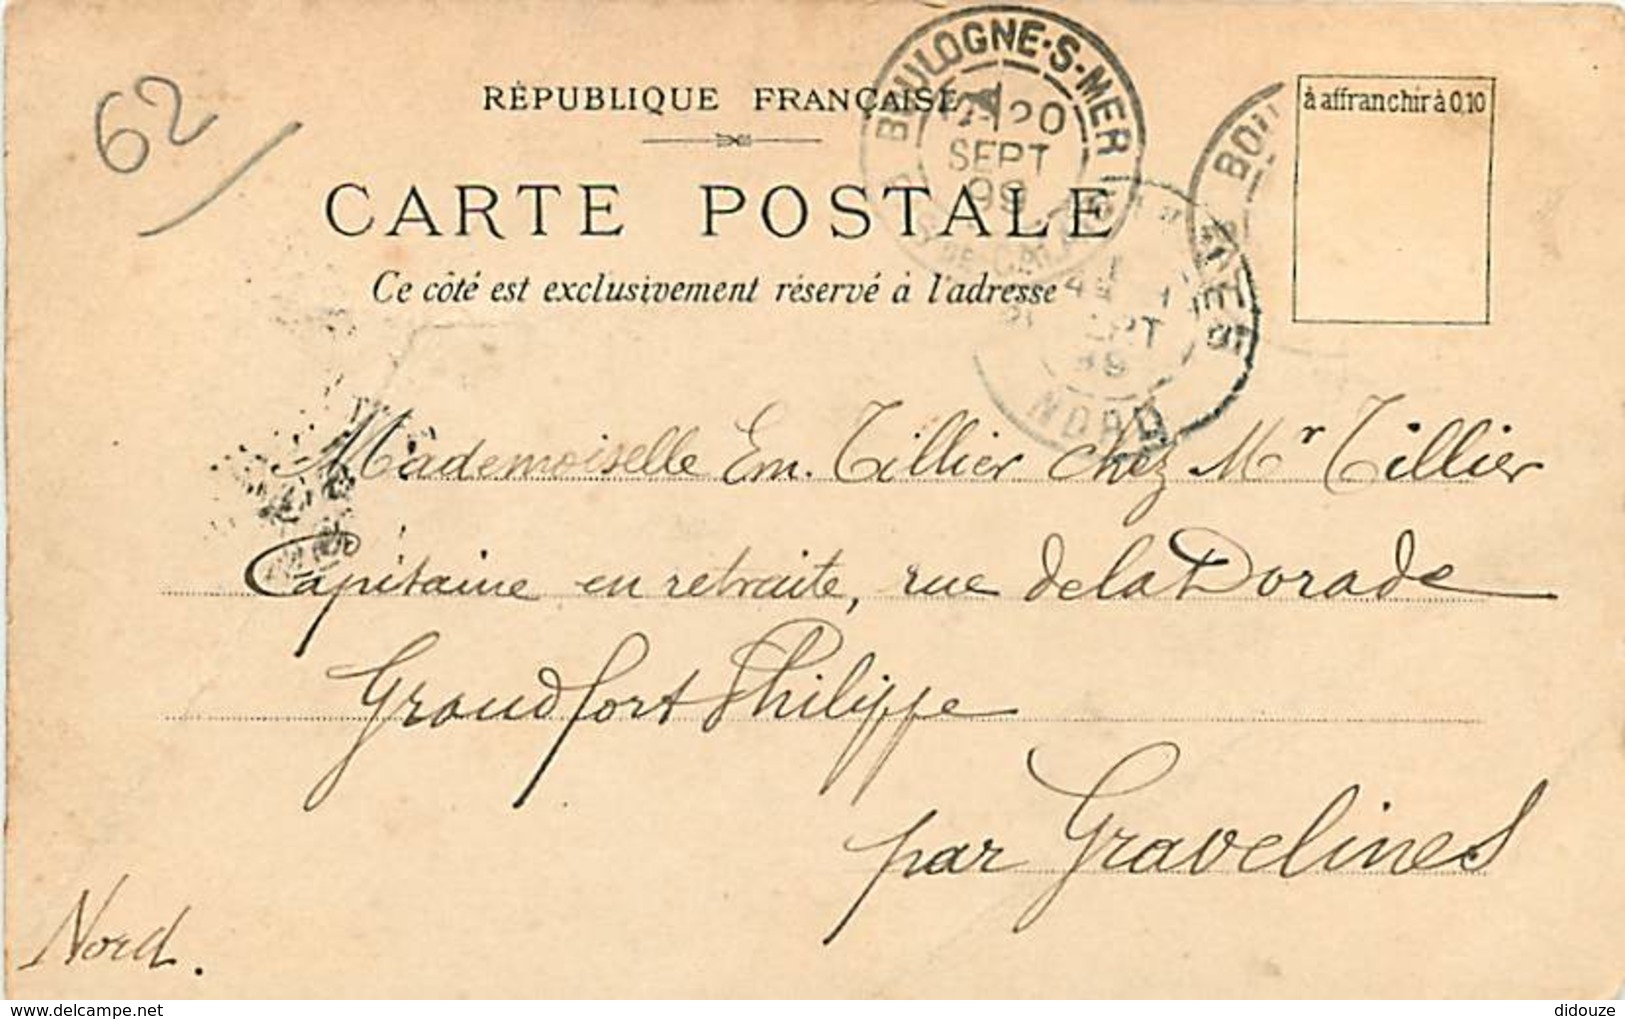 62
RÉPUBLIQUE FRANÇAISE
CARTE POSTALE
Ce côté est exclusivement réservé à l'adresse
à affranchir à 0,10
BOULOGNE-S-MER
20
SEPT
99
NORD
Mademoiselle Em. Tillier chez Mr Tillier
Capitaine en retraite, rue de la Dorade
Grand fort Philippe
par Gravelines
Nord.
https://www.delcampe.net
didouze